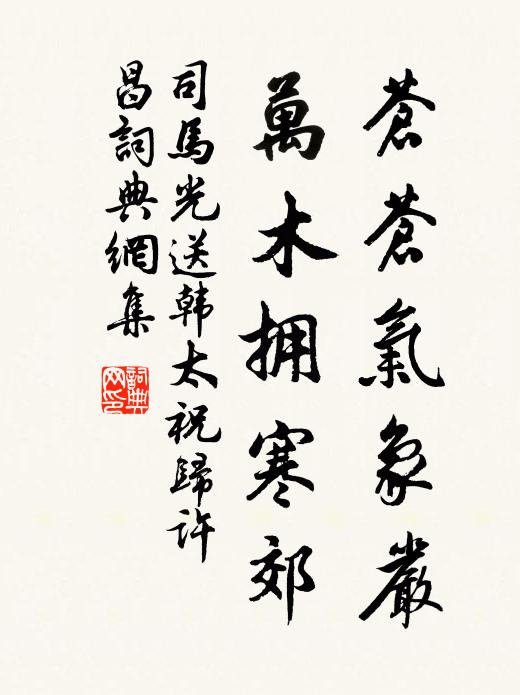 蒼蒼氣象嚴
萬木拥寒郊
司馬光送韩太祝歸许
昌詞典網集
詞典
网印